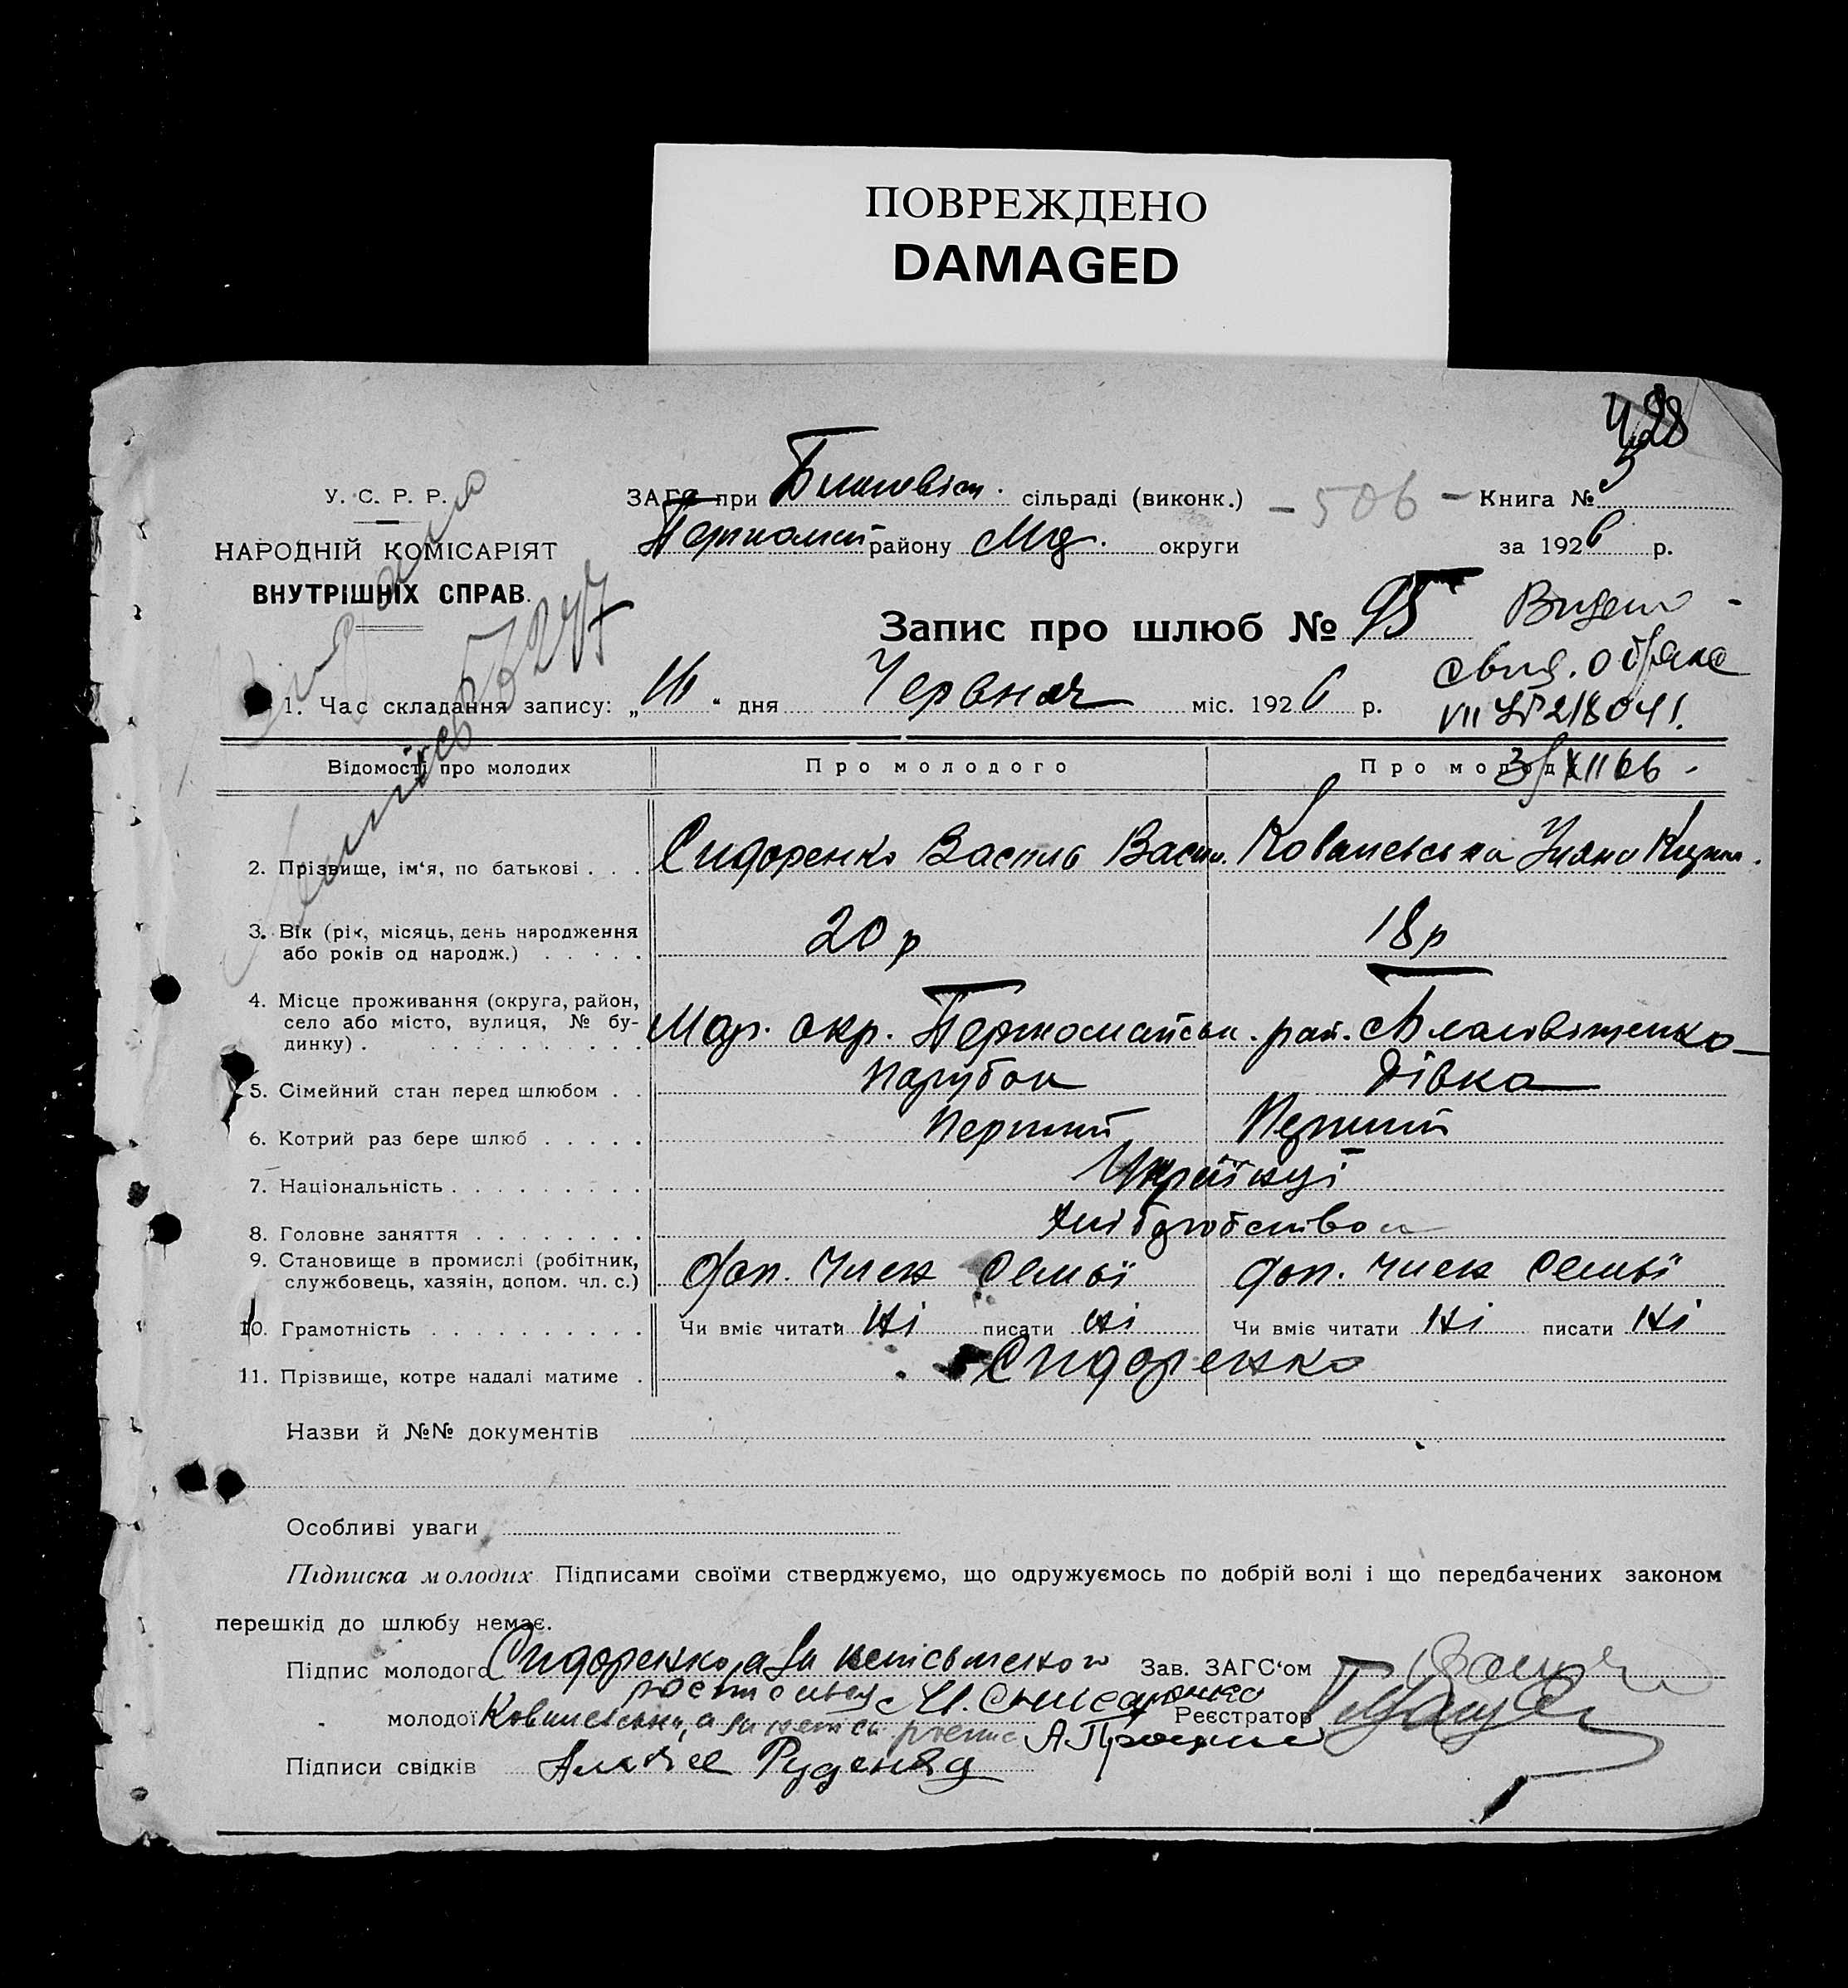 ПОВРЕЖДЕНО
DAMAGED
428
У. С. Р. Р.
НАРОДНІЙ КОМІСАРІЯТ
ВНУТРІШНІХ СПРАВ.
ЗАГС при Благовіщ. сільраді (виконк.) - 506 - Книга № 5
Першомай району Мр. округи за 1926 р.
Запис про шлюб № 95
Видано
свид. о браке
VII 218041.
3/XII 66
1. Час складання запису: „16“ дня Червня міс. 1926 р.
Відомості про молодих Про молодого Про молоду
2. Прізвище, ім‘я, по батькові . . . Сидоренко Василь Васил. Ковалевська Уляна
3. Вік (рік, місяць, день народження 20 р 18 р
або років од народж.) . . . . .
4. Місце проживання (округа, район,
село або місто, вулиця, № бу- Мар. окр. Першомайськ. рай. с Благовіщенка
динку) . . . . . . . . . . .
5. Сімейний стан перед шлюбом . . Парубок Дівка
6. Котрий раз бере шлюб . . . . . Перший Перший
7. Національність . . . . . . . . . Українці
8. Головне заняття . . . . . . . . Хліборобством
9. Становище в промислі (робітник,
службовець, хазяін, допом. чл. с.) Доп. Член Семьї Доп. Член Семьї
10. Грамотність . . . . . . . . . . Чи вміє читати Ні писати Ні Чи вміє читати Ні писати Ні
11. Прізвище, котре надалі матиме . Сидоренко
Назви й №№ документів
Особливі уваги
Підписка молодих. Підписами своїми стверджуємо, що одружуємось по добрій волі і що передбачених законом
перешкід до шлюбу немає.
Підпис молодого Сидоренко, а за неписьменого Зав. ЗАГС‘ом
молодої Ковалевська, а за Реєстратор
Підписи свідків